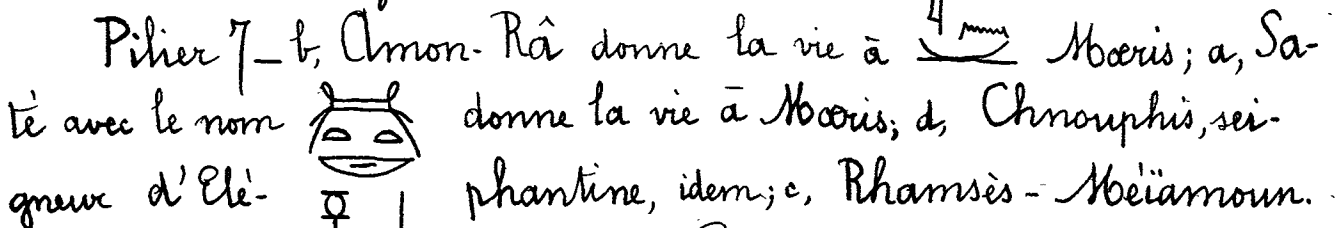 Pilier 7_b, Amon-Râ donne la vie à Mœris; a, Sa-
té avec le nom donne la vie à Mœris; d, Chnouphis, sei-
gneur d'Elé- phantine, idem; c, Rhamsès-Méïamoun.